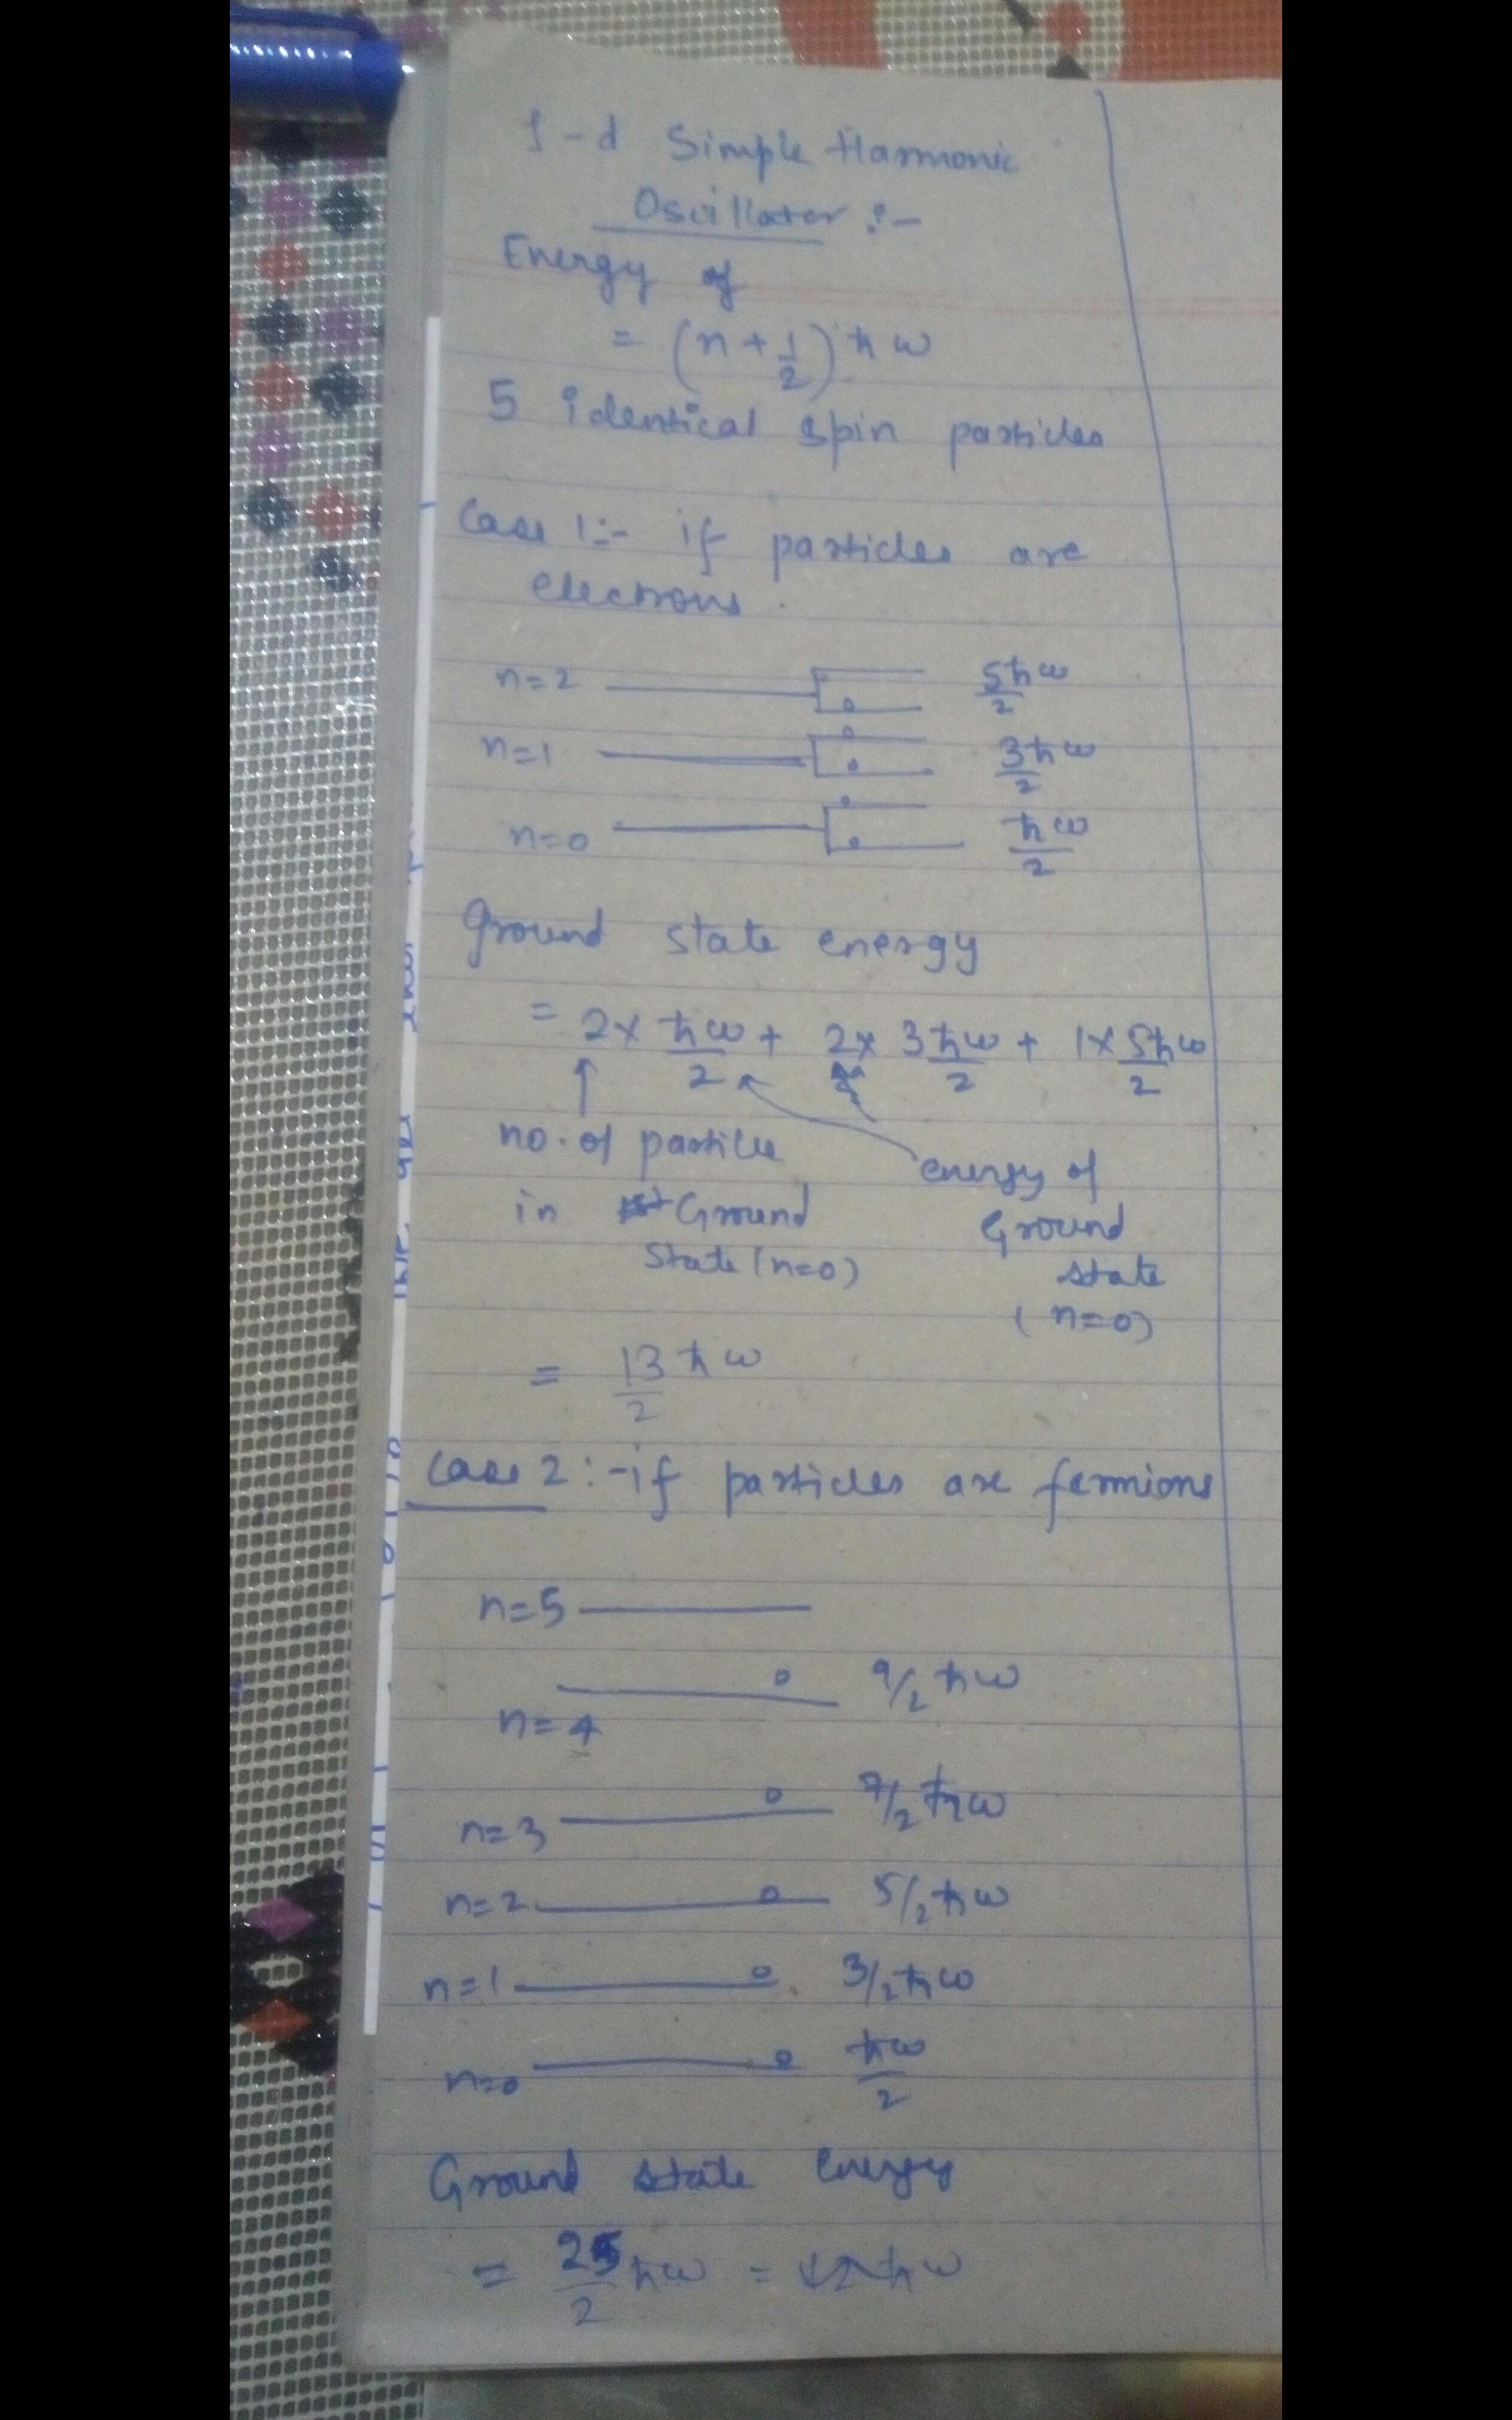 1-d Simple Harmonic
Oscillator :-
Energy of
= (n + 1/2) ħω
5 identical spin particles
Case 1:- if particles are
electrons.
n=2 5ħω/2
n=1 3ħω/2
n=0 ħω/2
Ground state energy
= 2x ħω/2 + 2x 3ħω/2 + 1x 5ħω/2
no. of particle
in Ground
State (n=0)
energy of
Ground
state
(n=0)
= 13/2 ħω
case 2:- if particles are fermions
n=5
n=4 9/2 ħω
n=3 7/2 ħω
n=2 5/2 ħω
n=1 3/2 ħω
n=0 ħω/2
Ground state energy
= 25/2 ħω =